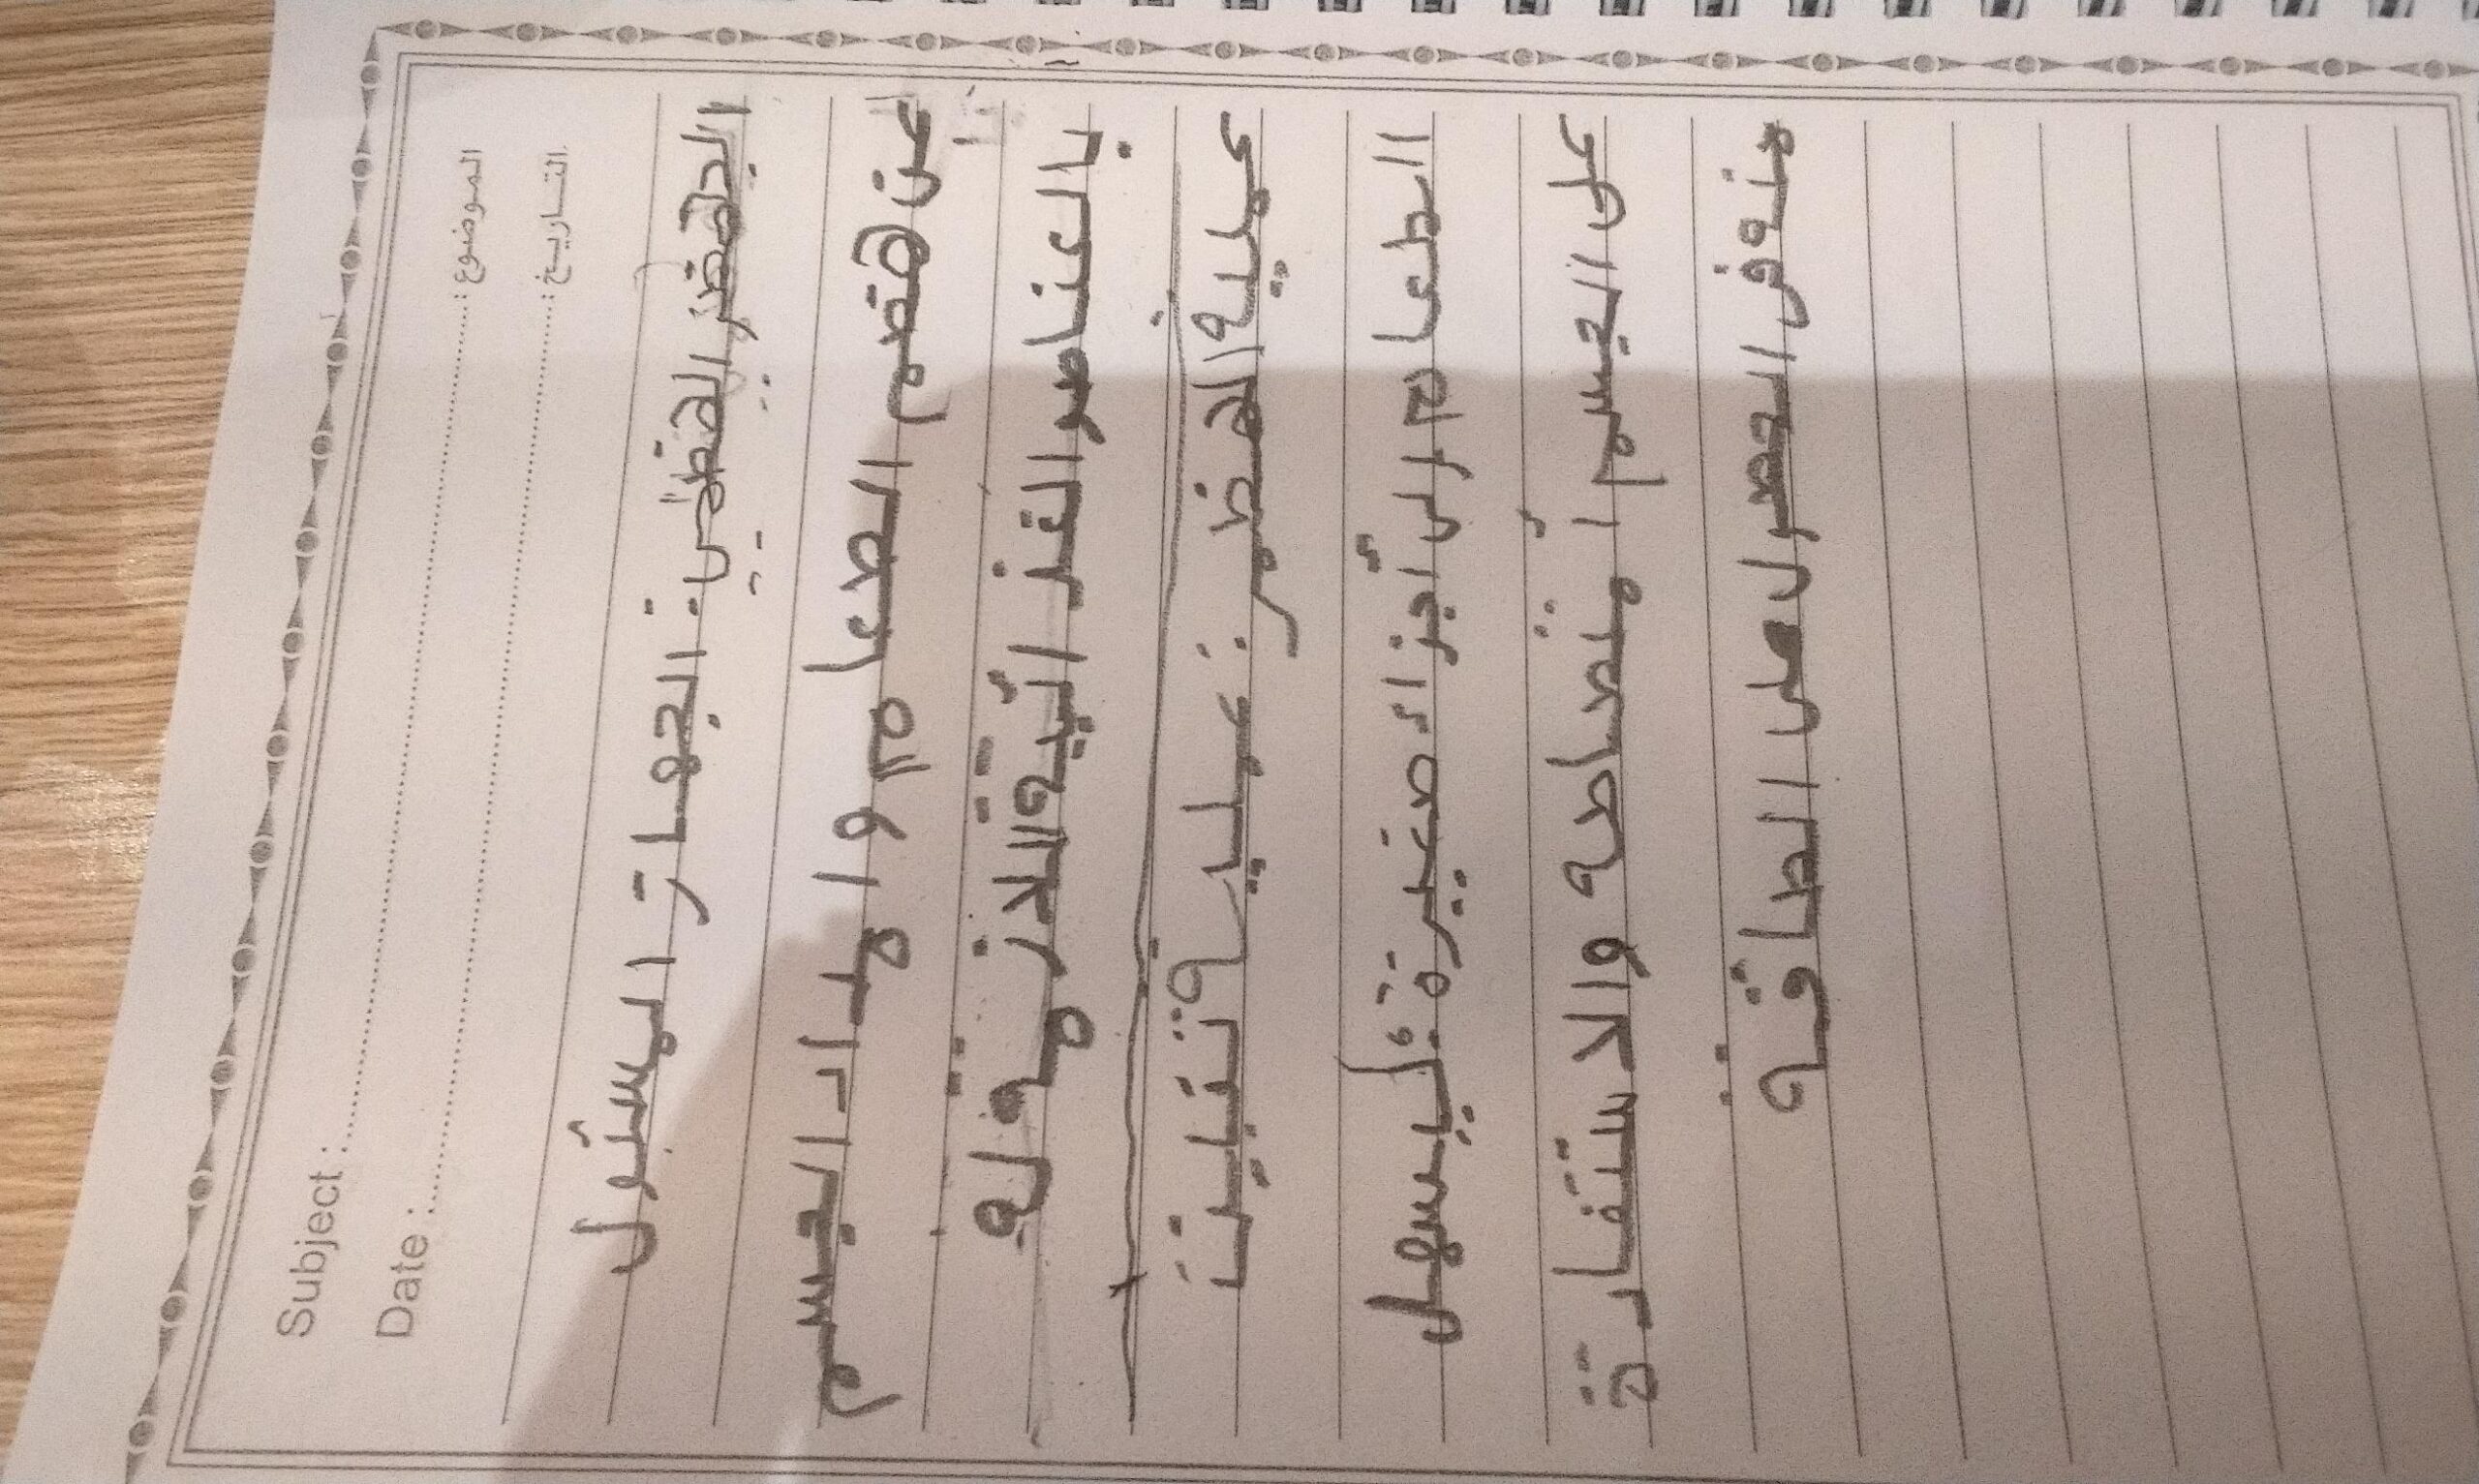 Subject : الموضوع :
Date : التاريخ :
الهضمي : الجهاز المسئول
عن هضم الصعام و امداد الجسم
بالعناصر الغذائية اللازمة له
عملية الهضم : عملية تفتيت
الطعام إلى أجزاء صغيرة ليسهل
على الجسم امتصاصه والاستفادة
منه في الحصول على الطاقة